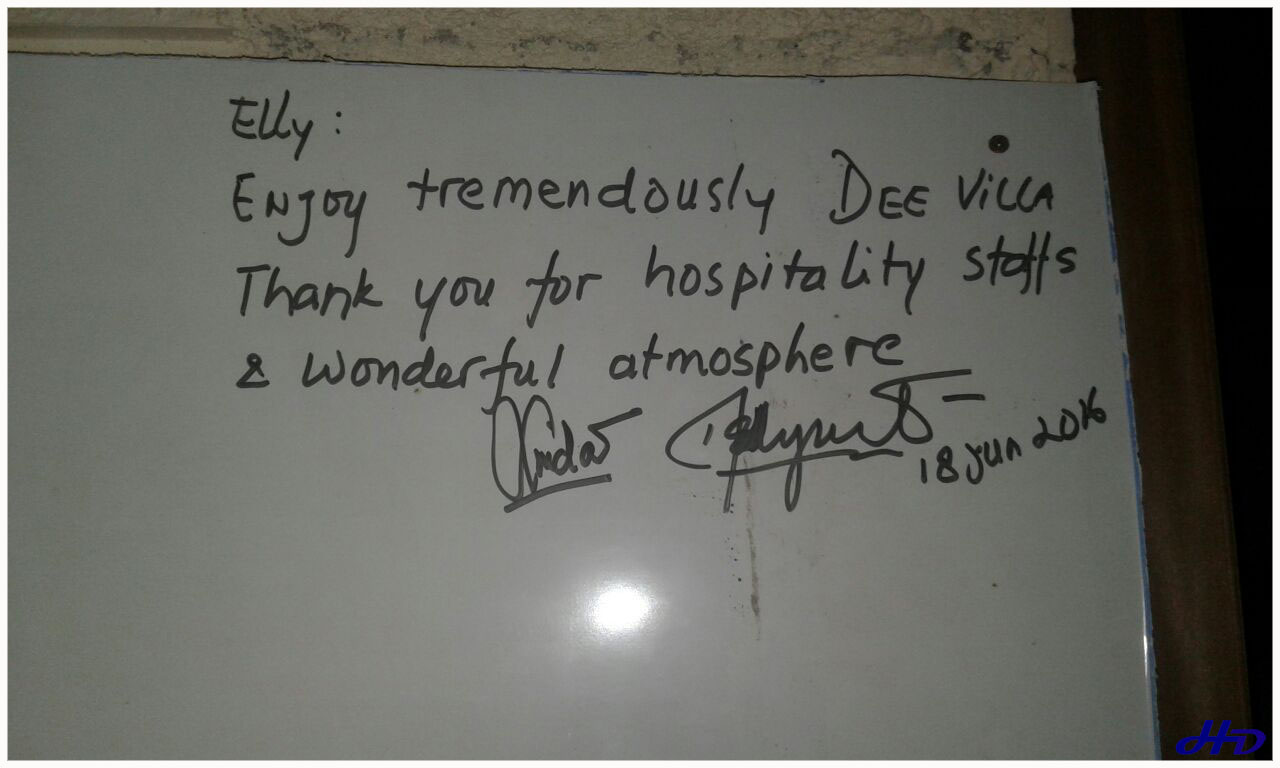 Elly:
Enjoy tremendously DEE ViLLA
Thank you for hospitality staffs
& wonderful atmosphere
18 Jun 2016
HD